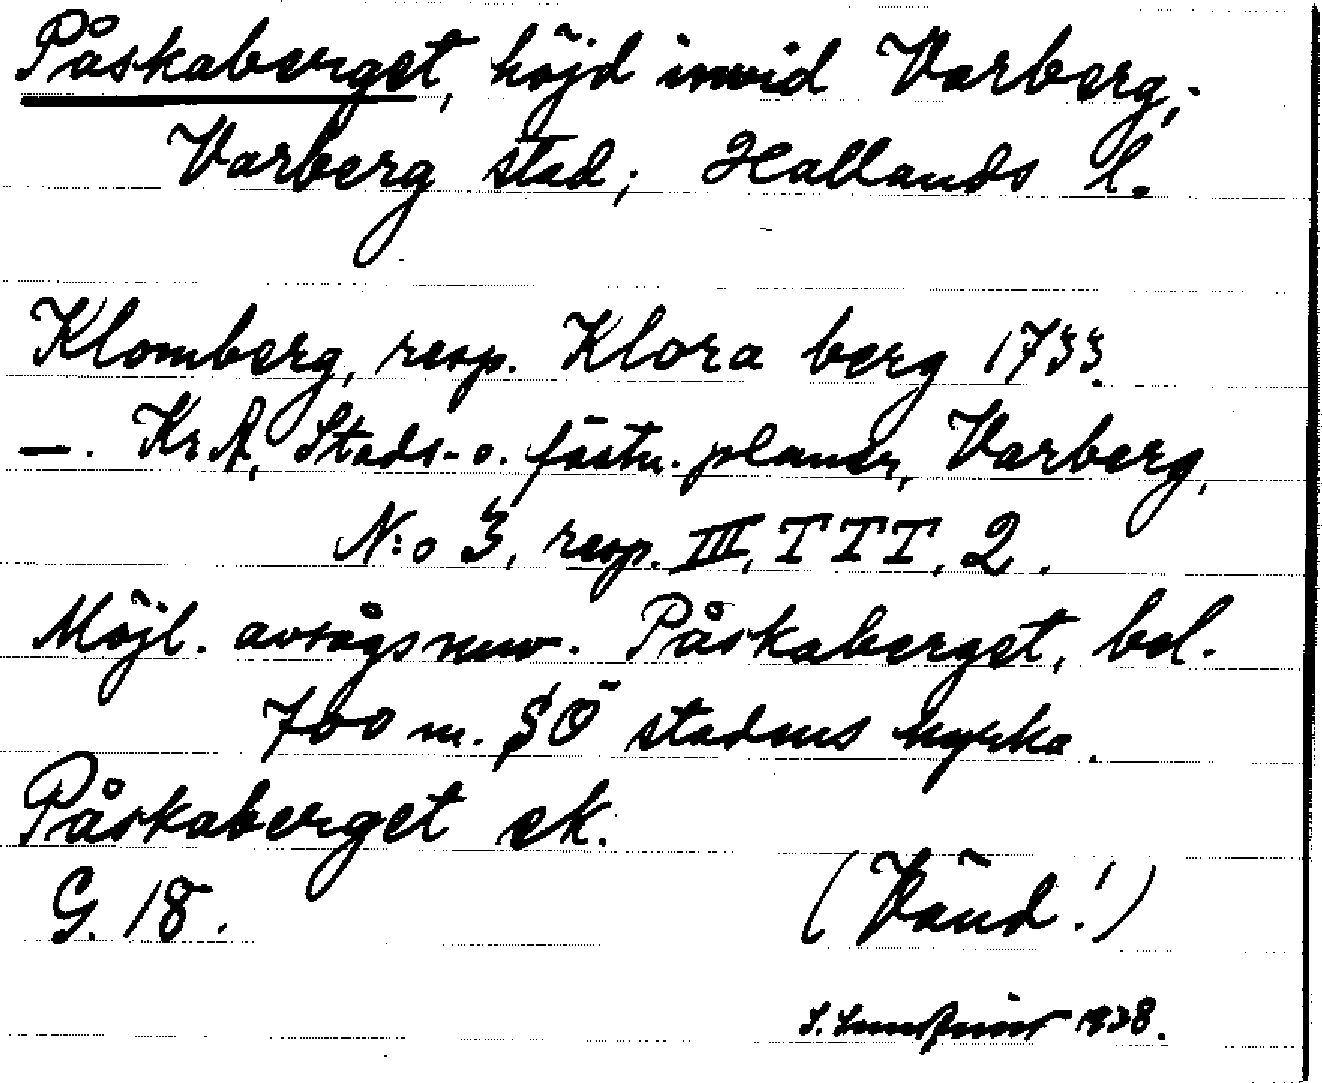 Påskaberget, höjd invid Varberg;
Varberg stad; Hallands l.
Klomberg, resp. Klora berg 1733
—. KrA, Stads- o. fästn. planer, Varberg,
N:o 3, resp. III, TTT, 2.
Möjl. avsågs nuv. Påskaberget, bel.
700 m. SÖ stadens kyrka.
Påskaberget ek.
G. 18.
(Vänd!)
S. 1938.